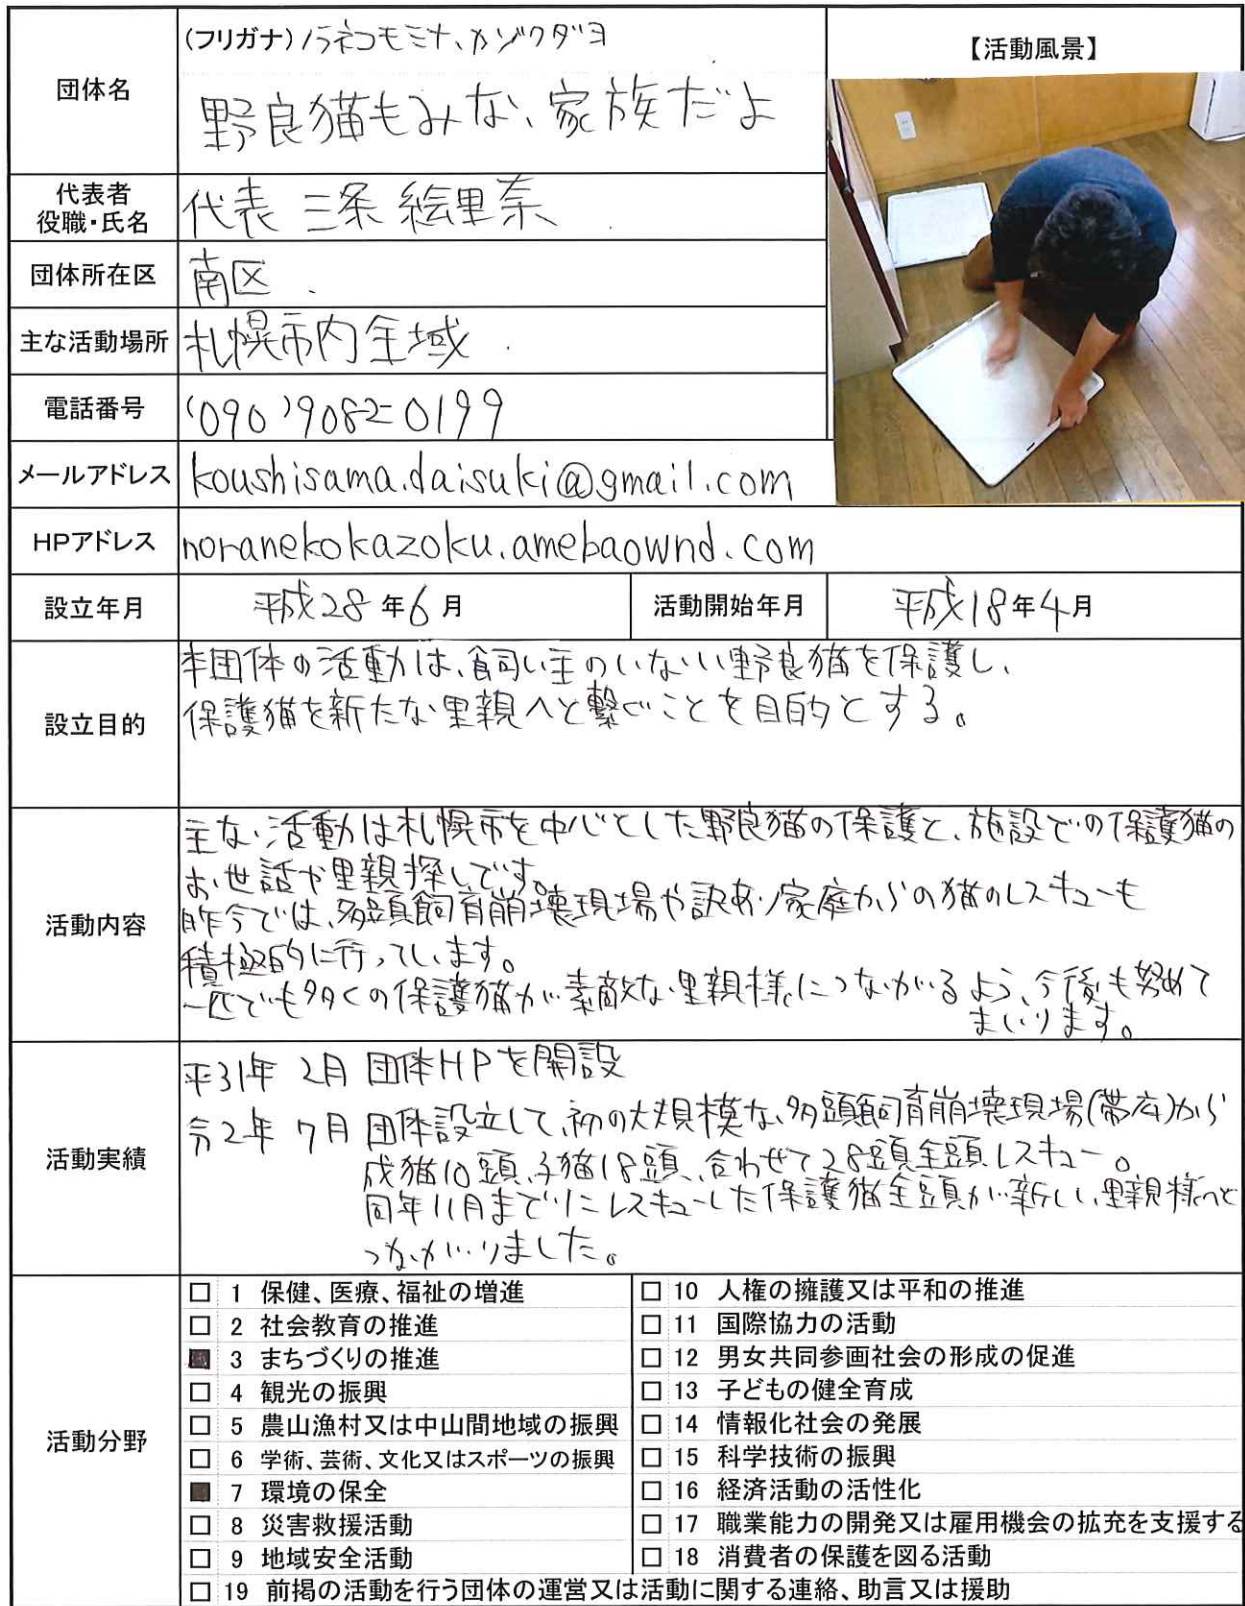 団体名
(フリガナ)ノラネコモミナ、カゾクダヨ
野良猫もみな、家族だよ
【活動風景】
代表者
役職・氏名
代表 三条 絵里奈
団体所在区
南区
主な活動場所
札幌市内全域
電話番号
(090)9082-0199
メールアドレス
koushisama.daisuki@gmail.com
HPアドレス
noranekokazoku.amebaownd.com
設立年月
平成28年6月
活動開始年月
平成18年4月
設立目的
本団体の活動は、飼い主のいない野良猫を保護し、
保護猫を新たな里親へと繋ぐことを目的とする。
活動内容
主な活動は札幌市を中心とした野良猫の保護と、施設での保護猫の
お世話や里親探しです。
昨今では、多頭飼育崩壊現場や訳あり家庭からの猫のレスキューも
積極的に行っています。
一匹でも多くの保護猫が素敵な里親様につながるよう、今後も努めて
まいります。
活動実績
平31年 2月 団体HPを開設
令2年 7月 団体設立して、初の大規模な多頭飼育崩壊現場(帯広)から
成猫10頭、子猫18頭、合わせて28頭全頭レスキュー。
同年11月までにレスキューした保護猫全頭が新しい里親様へと
つながりました。
活動分野
□ 1 保健、医療、福祉の増進
□ 2 社会教育の推進
■ 3 まちづくりの推進
□ 4 観光の振興
□ 5 農山漁村又は中山間地域の振興
□ 6 学術、芸術、文化又はスポーツの振興
■ 7 環境の保全
□ 8 災害救援活動
□ 9 地域安全活動
□ 10 人権の擁護又は平和の推進
□ 11 国際協力の活動
□ 12 男女共同参画社会の形成の促進
□ 13 子どもの健全育成
□ 14 情報化社会の発展
□ 15 科学技術の振興
□ 16 経済活動の活性化
□ 17 職業能力の開発又は雇用機会の拡充を支援する
□ 18 消費者の保護を図る活動
□ 19 前掲の活動を行う団体の運営又は活動に関する連絡、助言又は援助